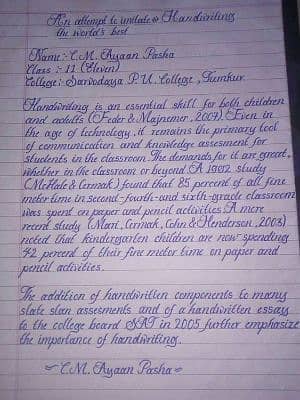 An attempt to imitate Handwriting
the world's best
Name:- C.M. Ayaan Pasha
Class :- 11 (Eleven)
College:- Sarvodaya P.U. College, Tumkur.
Handwriting is an essential skill for both children
and adults (Feder & Majnemer, 2007). Even in
the age of technology, it remains the primary tool
of communication and knowledge assesment for
students in the classroom. The demands for it are great,
whether in the classroom or beyond. A 1992 study
(McHale & Cermak) found that 85 percent of all fine
motor time in second-fourth-and sixth-grade classroom
was spent on paper and pencil activities. A more
recent study (Marr, Cermak, Cohn & Henderson, 2003)
noted that kindergarten children are now spending
42 percent of their fine motor time on paper and
pencil activities.
The addition of handwritten components to many
state slan assesments and of a handwritten essay
to the college board SAT in 2005 further emphasize
the importance of handwriting.
~ C.M. Ayaan Pasha ~